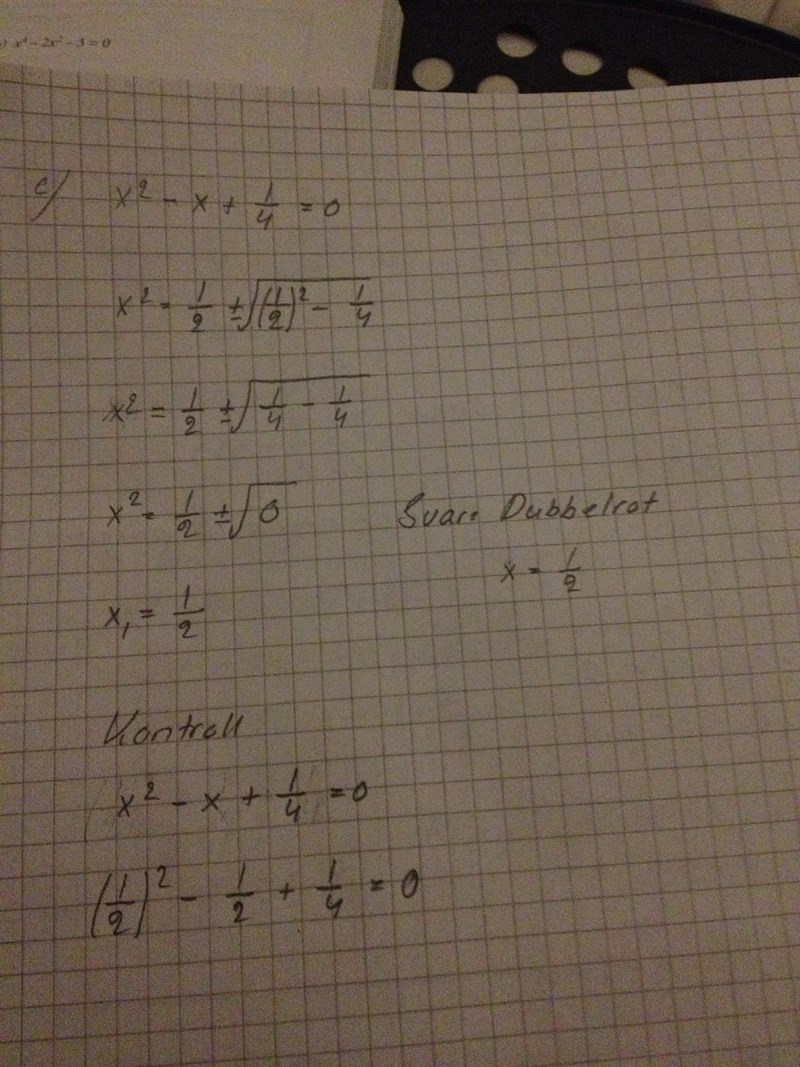 ) x⁴ − 2x² − 3 = 0
c) x² − x + 1/4 = 0
x² = 1/2 ± √((1/2)² − 1/4)
x² = 1/2 ± √(1/4 − 1/4)
x² = 1/2 ± √0
Svar: Dubbelrot
x = 1/2
x₁ = 1/2
Kontroll
x² − x + 1/4 = 0
(1/2)² − 1/2 + 1/4 = 0